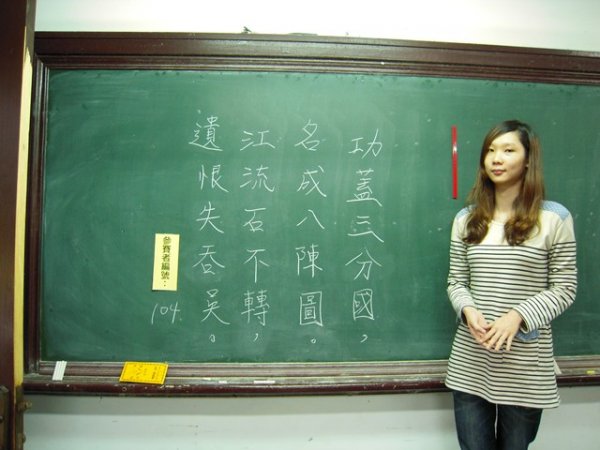 功蓋三分國，
名成八陳圖。
江流石不轉，
遺恨失吞吳。
參賽者編號：
104.